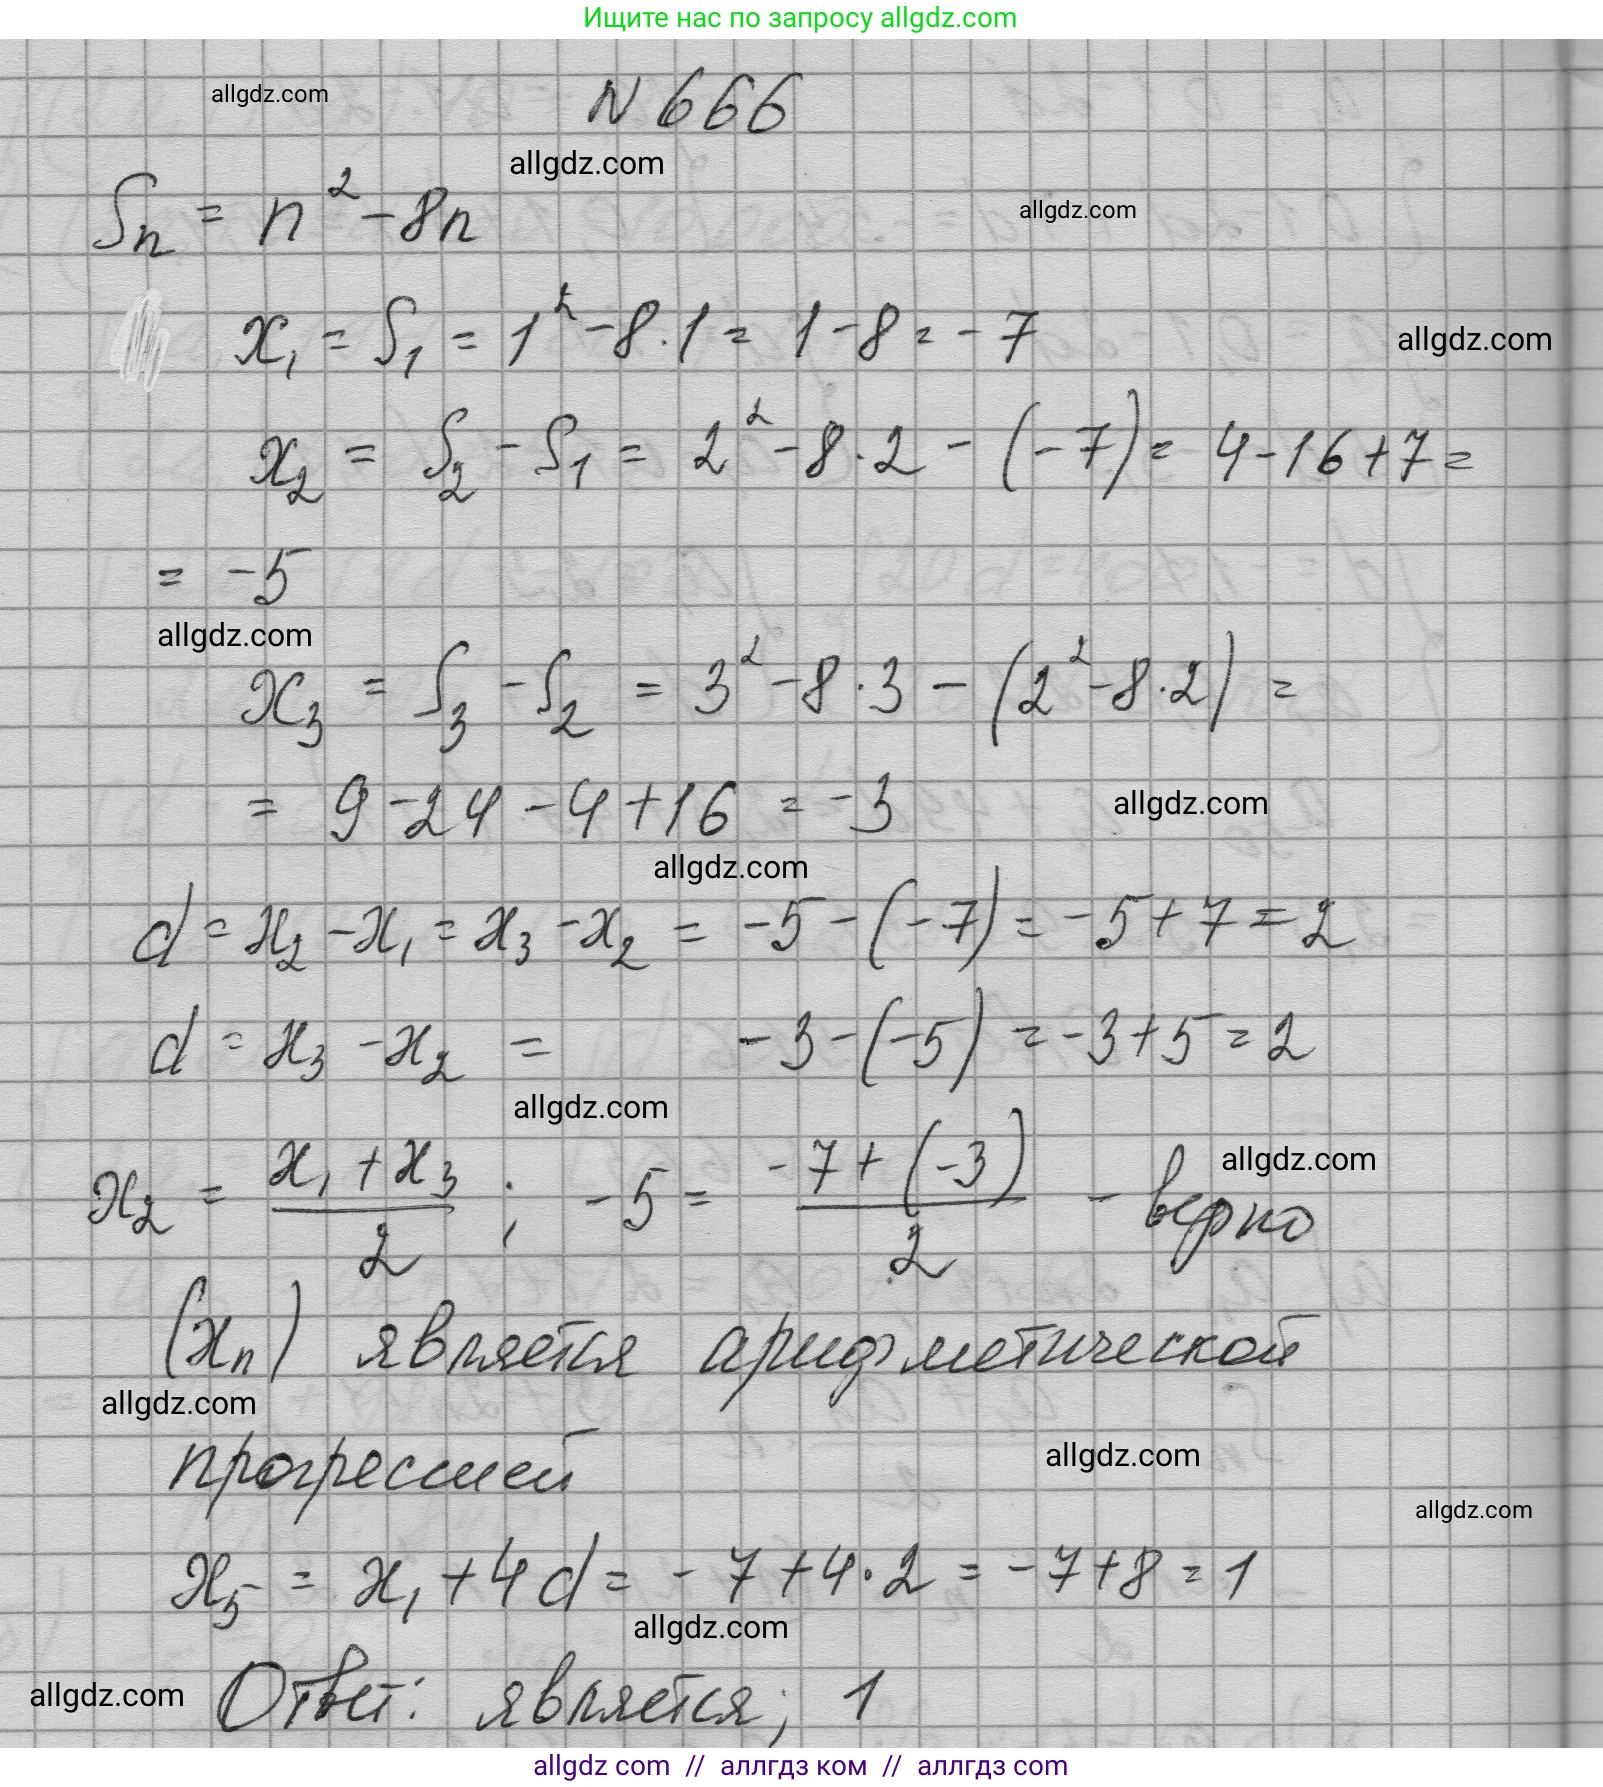 Ищите нас по запросу allgdz.com
allgdz.com
N 666
allgdz.com
Sₙ = n² - 8n
allgdz.com
x₁ = S₁ = 1² - 8·1 = 1 - 8 = -7
allgdz.com
x₂ = S₂ - S₁ = 2² - 8·2 - (-7) = 4 - 16 + 7 =
= -5
allgdz.com
x₃ = S₃ - S₂ = 3² - 8·3 - (2² - 8·2) =
= 9 - 24 - 4 + 16 = -3
allgdz.com
allgdz.com
d = x₂ - x₁ = x₃ - x₂ = -5 - (-7) = -5 + 7 = 2
d = x₃ - x₂ = -3 - (-5) = -3 + 5 = 2
allgdz.com
allgdz.com
x₂ = (x₁ + x₃)/2 ; -5 = (-7 + (-3))/2 - верно
(xₙ) является арифметической
allgdz.com
прогрессией
allgdz.com
allgdz.com
x₅ = x₁ + 4d = -7 + 4·2 = -7 + 8 = 1
allgdz.com
allgdz.com
Ответ: является; 1
allgdz.com // аллгдз ком // аллгдз com